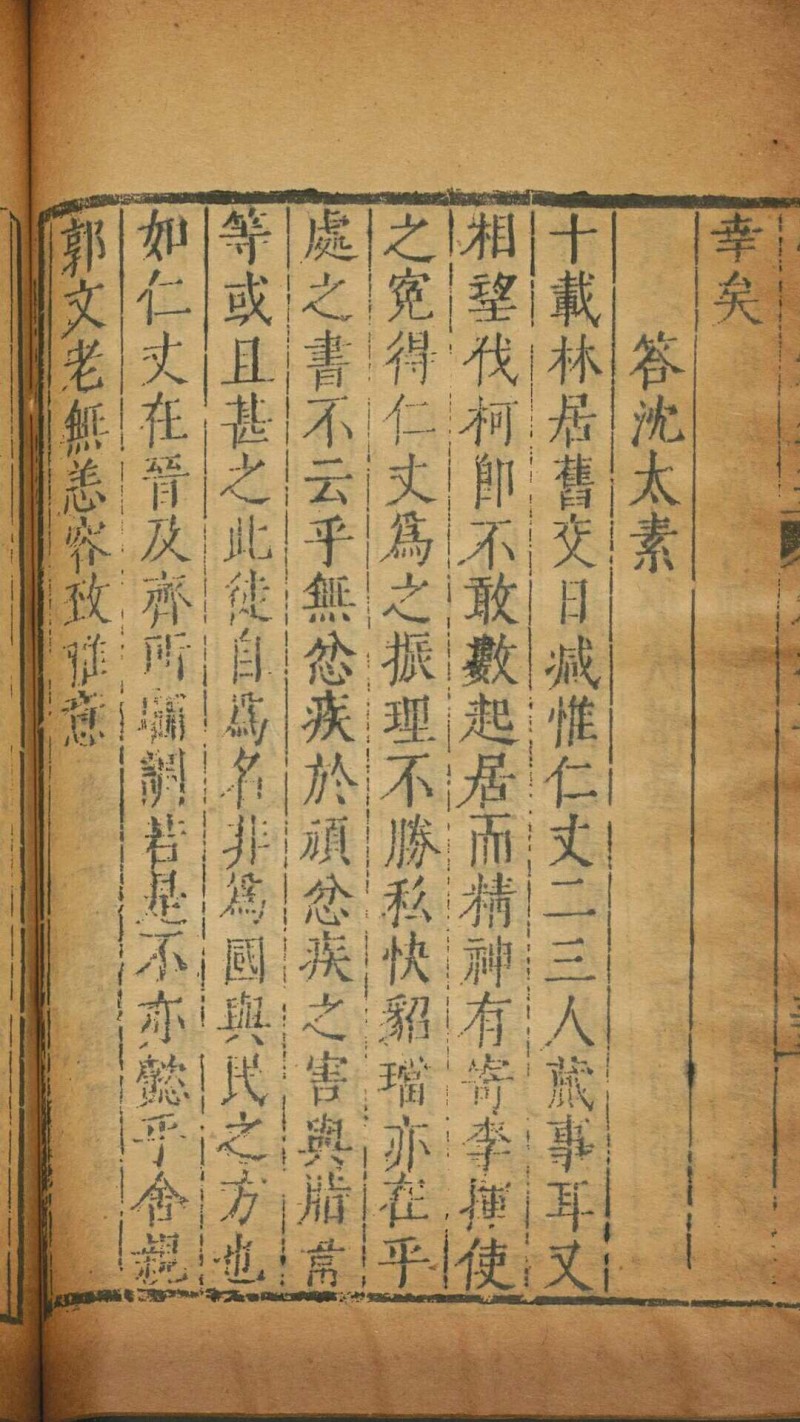 幸矣
答沈太素
十載林居舊交日減惟仁丈二三人蕆事耳又
相望伐柯即不敢數起居而精神有寄李揮使
之冤得仁丈爲之振理不勝私快貂璫亦在乎
處之書不云乎無忿疾於頑忿疾之害與脂韋
等或且甚之此徒自爲名非爲國與民之方也
如仁丈在晉及齊所調若是不亦懿乎舍親
郭文老無恙容致雅意